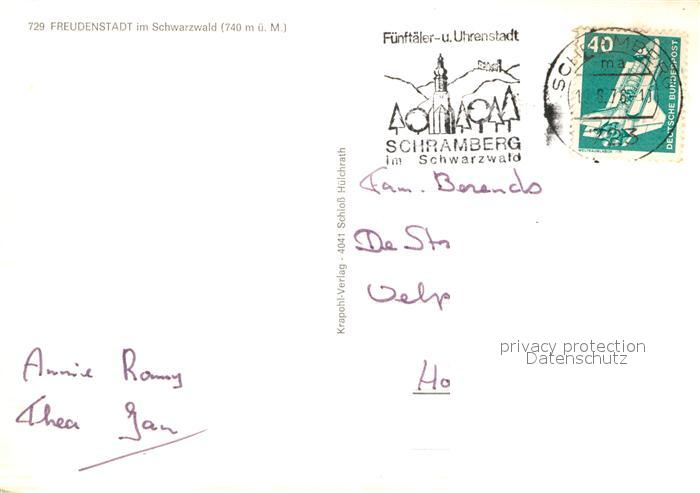 729 FREUDENSTADT im Schwarzwald (740 m ü. M.)
Fünftäler- u. Uhrenstadt
SCHRAMBERG
im Schwarzwald
SCHRAMBERG
ma
40
DEUTSCHE BUNDESPOST
Krapohl-Verlag - 4041 Schloß Hülchrath
Fam. Berends
De Sto
Velp
Ho
privacy protection
Datenschutz
Annie Romy
Thea Jan